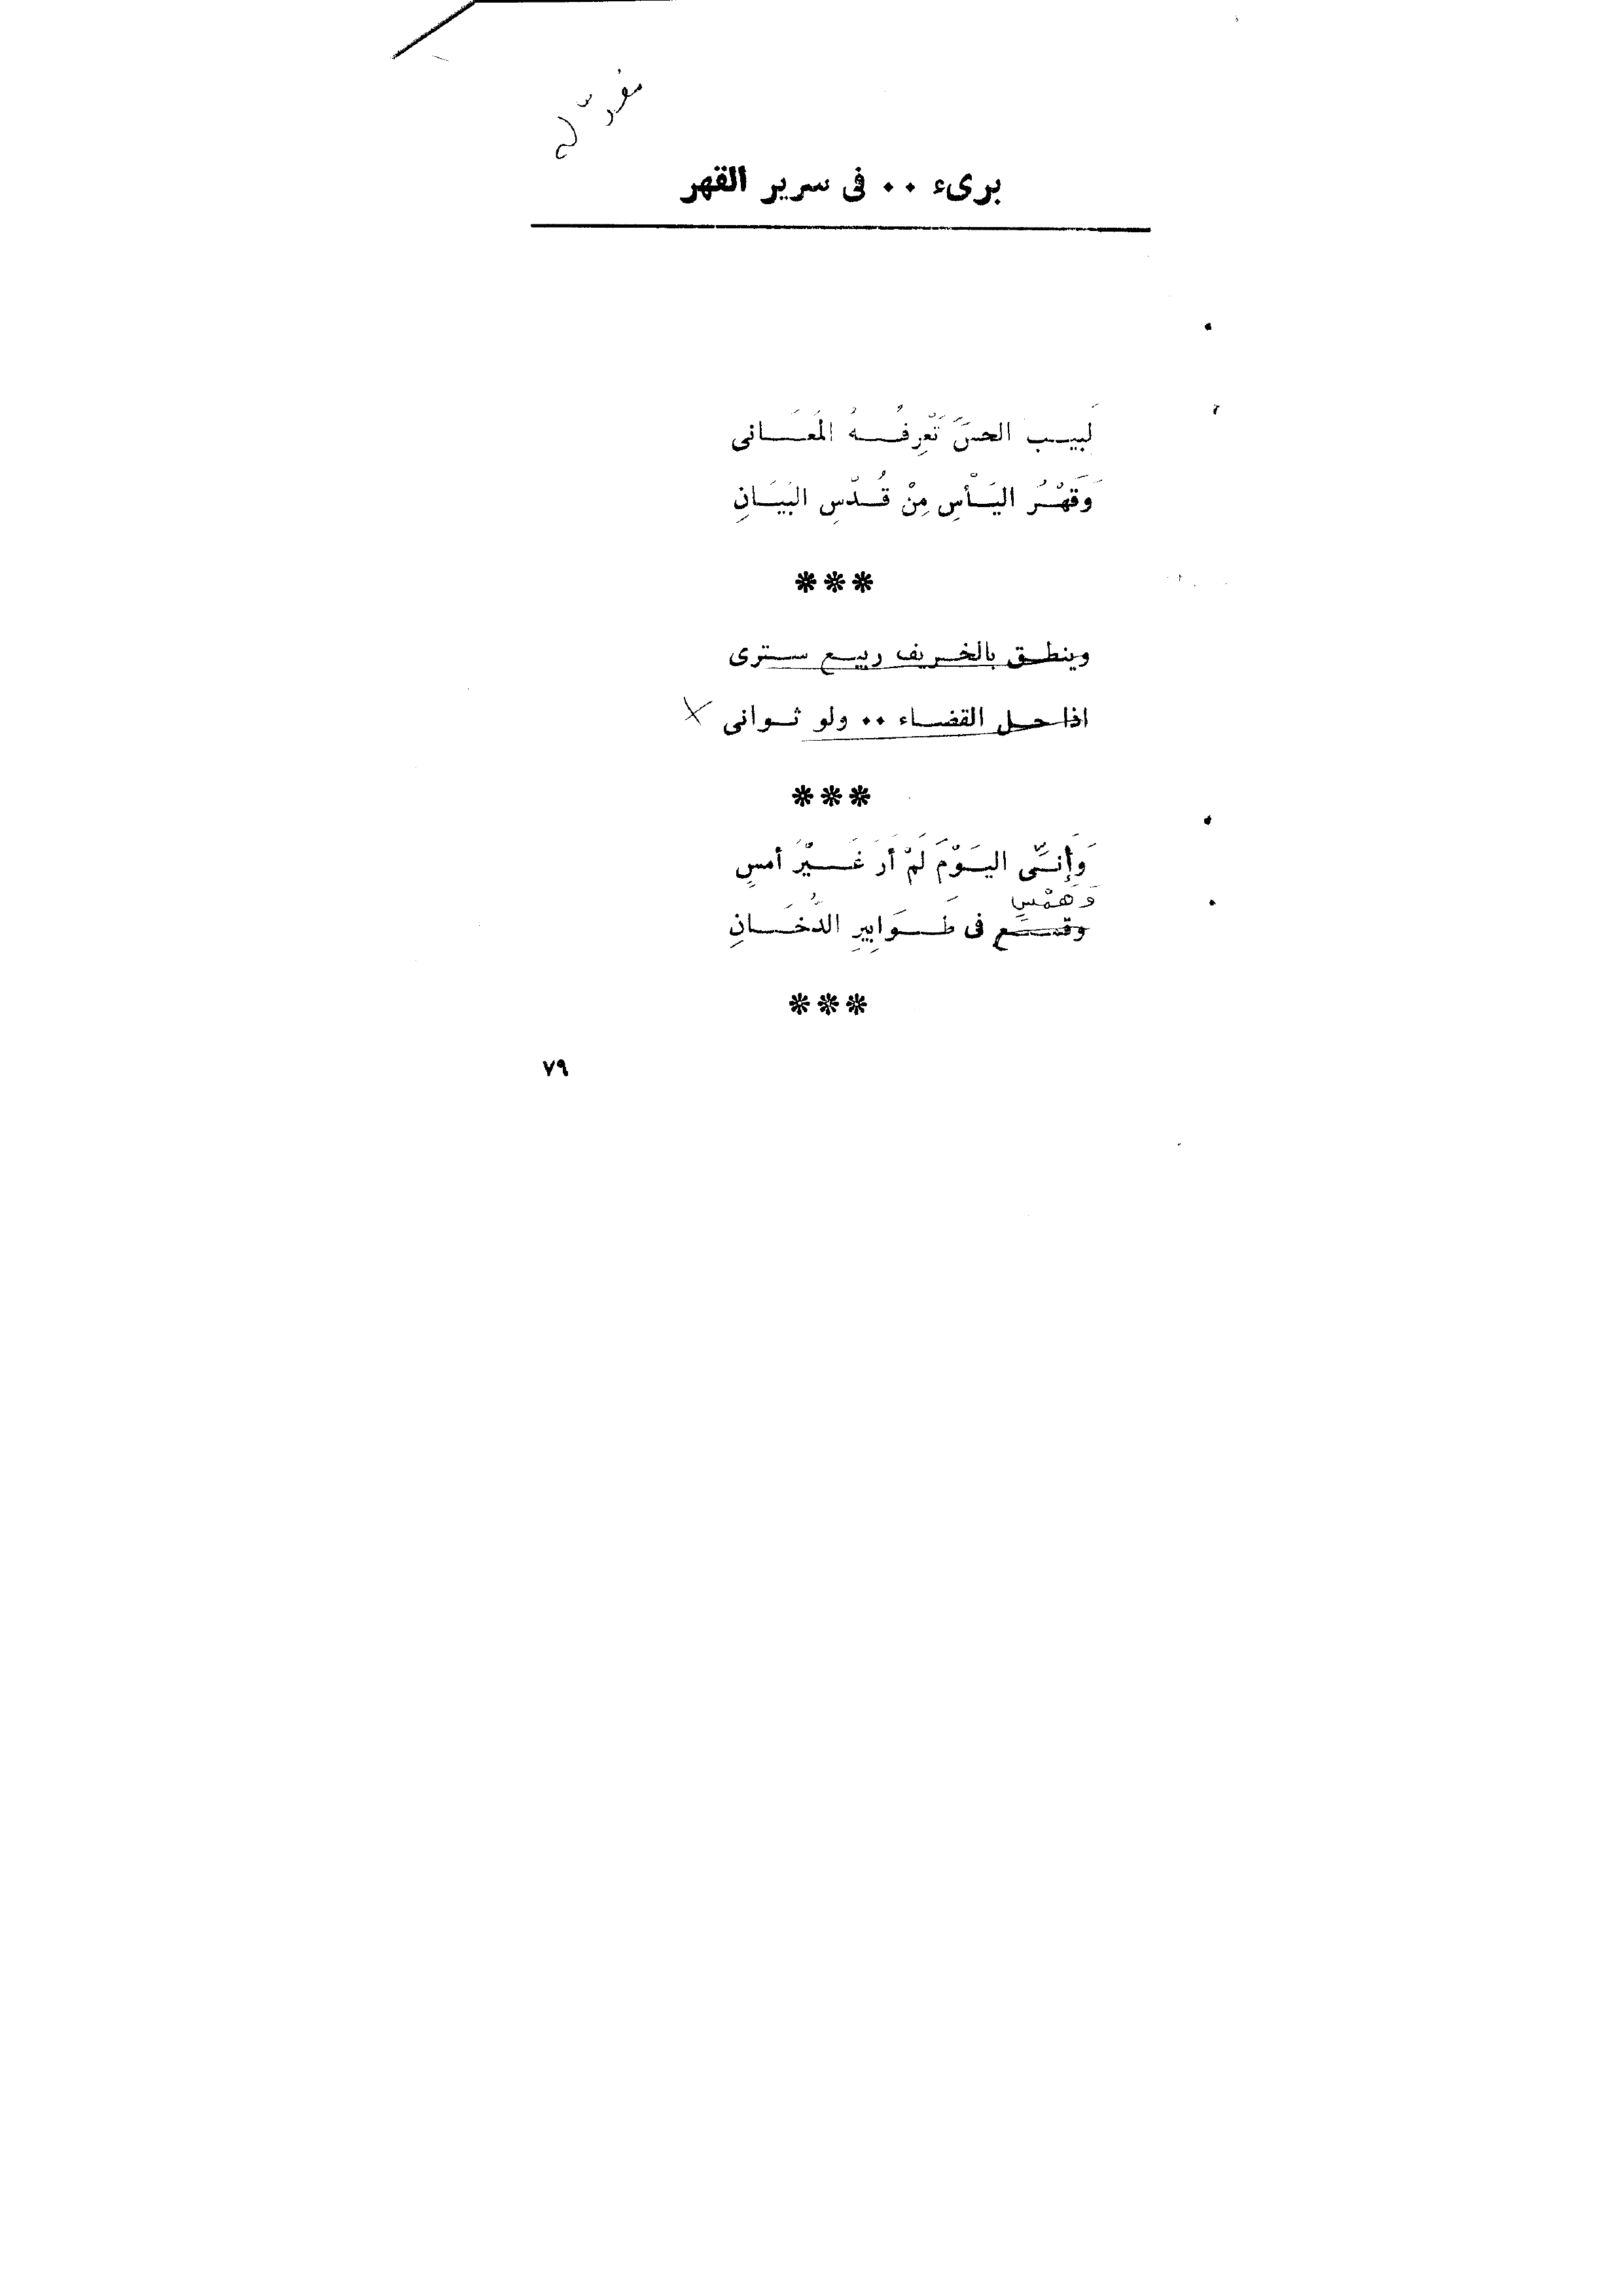 برىء ٠٠ فى سرير القهر
لبيب الحسَّ تَعْرِفُهُ المَعَانى
وَقَهْرُ اليَأْسِ مِنْ قُدْسِ البَيَانِ
***
وينطق بالخريف ربيع سترى
اذا حل القضاء ٠٠ ولو ثوانى
***
وَإِنَّى اليَوْمَ لَمْ أرَ غَيْرَ أمسٍ
وَهَمْسٍ
وقع فى طَوَابِيرِ الدُّخَانِ
***
٧٩